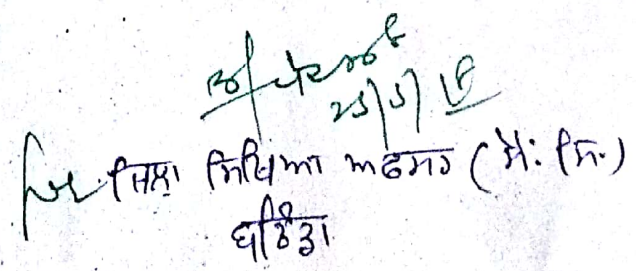 25/5/18
ਜਿਲਾ ਸਿੱਖਿਆ ਅਫਸਰ (ਸੈ: ਸਿ:)
ਬਠਿੰਡਾ